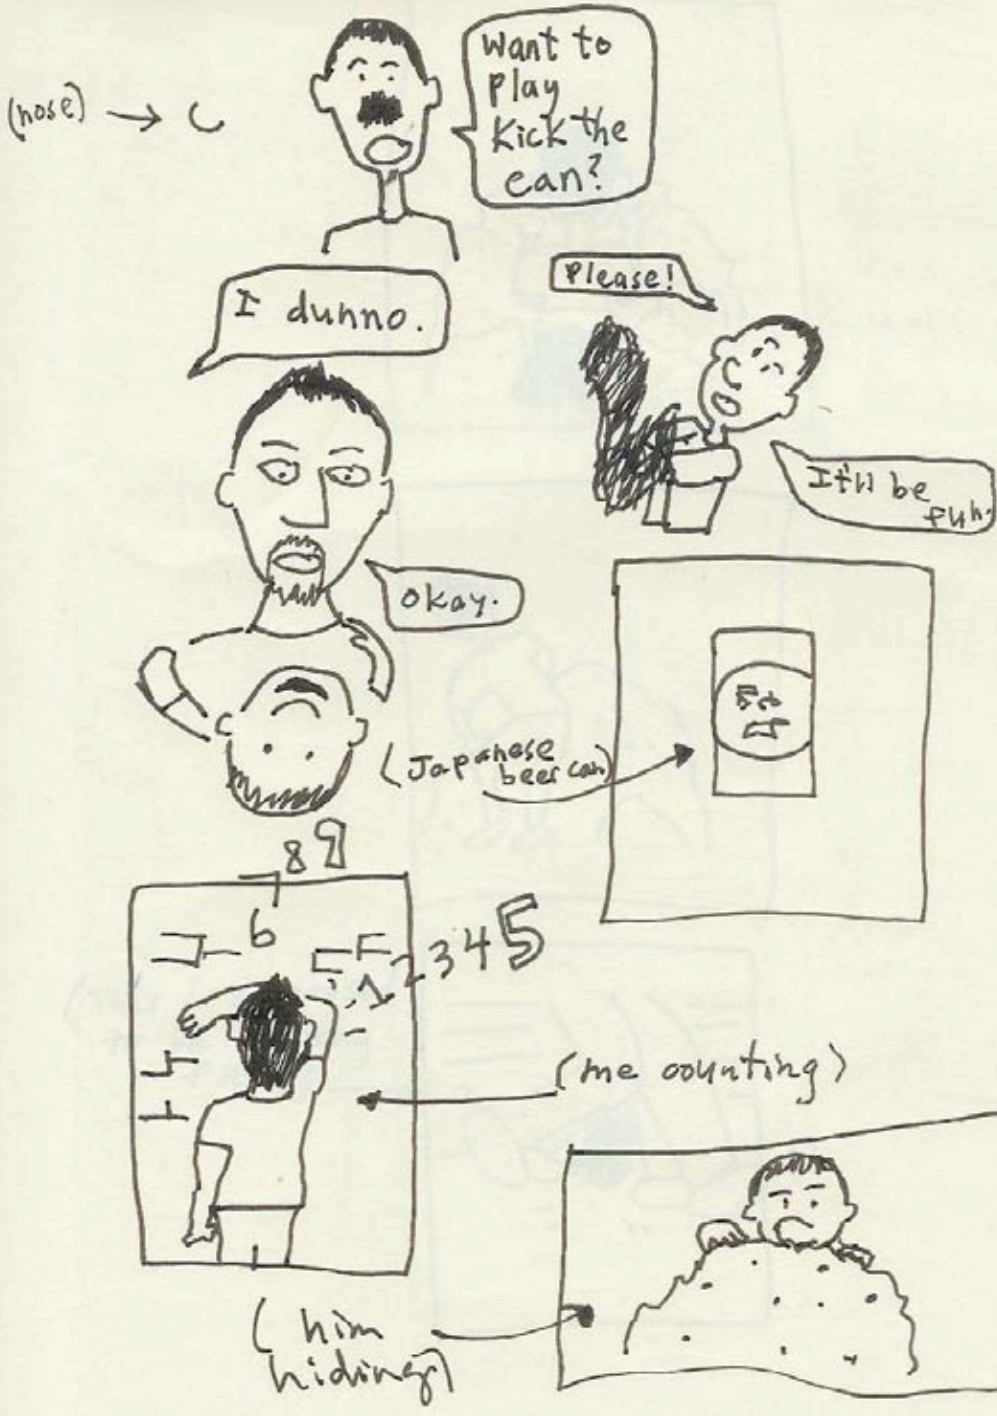 (nose)
Want to
Play
Kick the
can?
I dunno.
Please!
It'll be
fun.
Okay.
(Japanese
beer can)
8 9
7
6
1 2 3 4 5
(me counting)
(him
hiding)